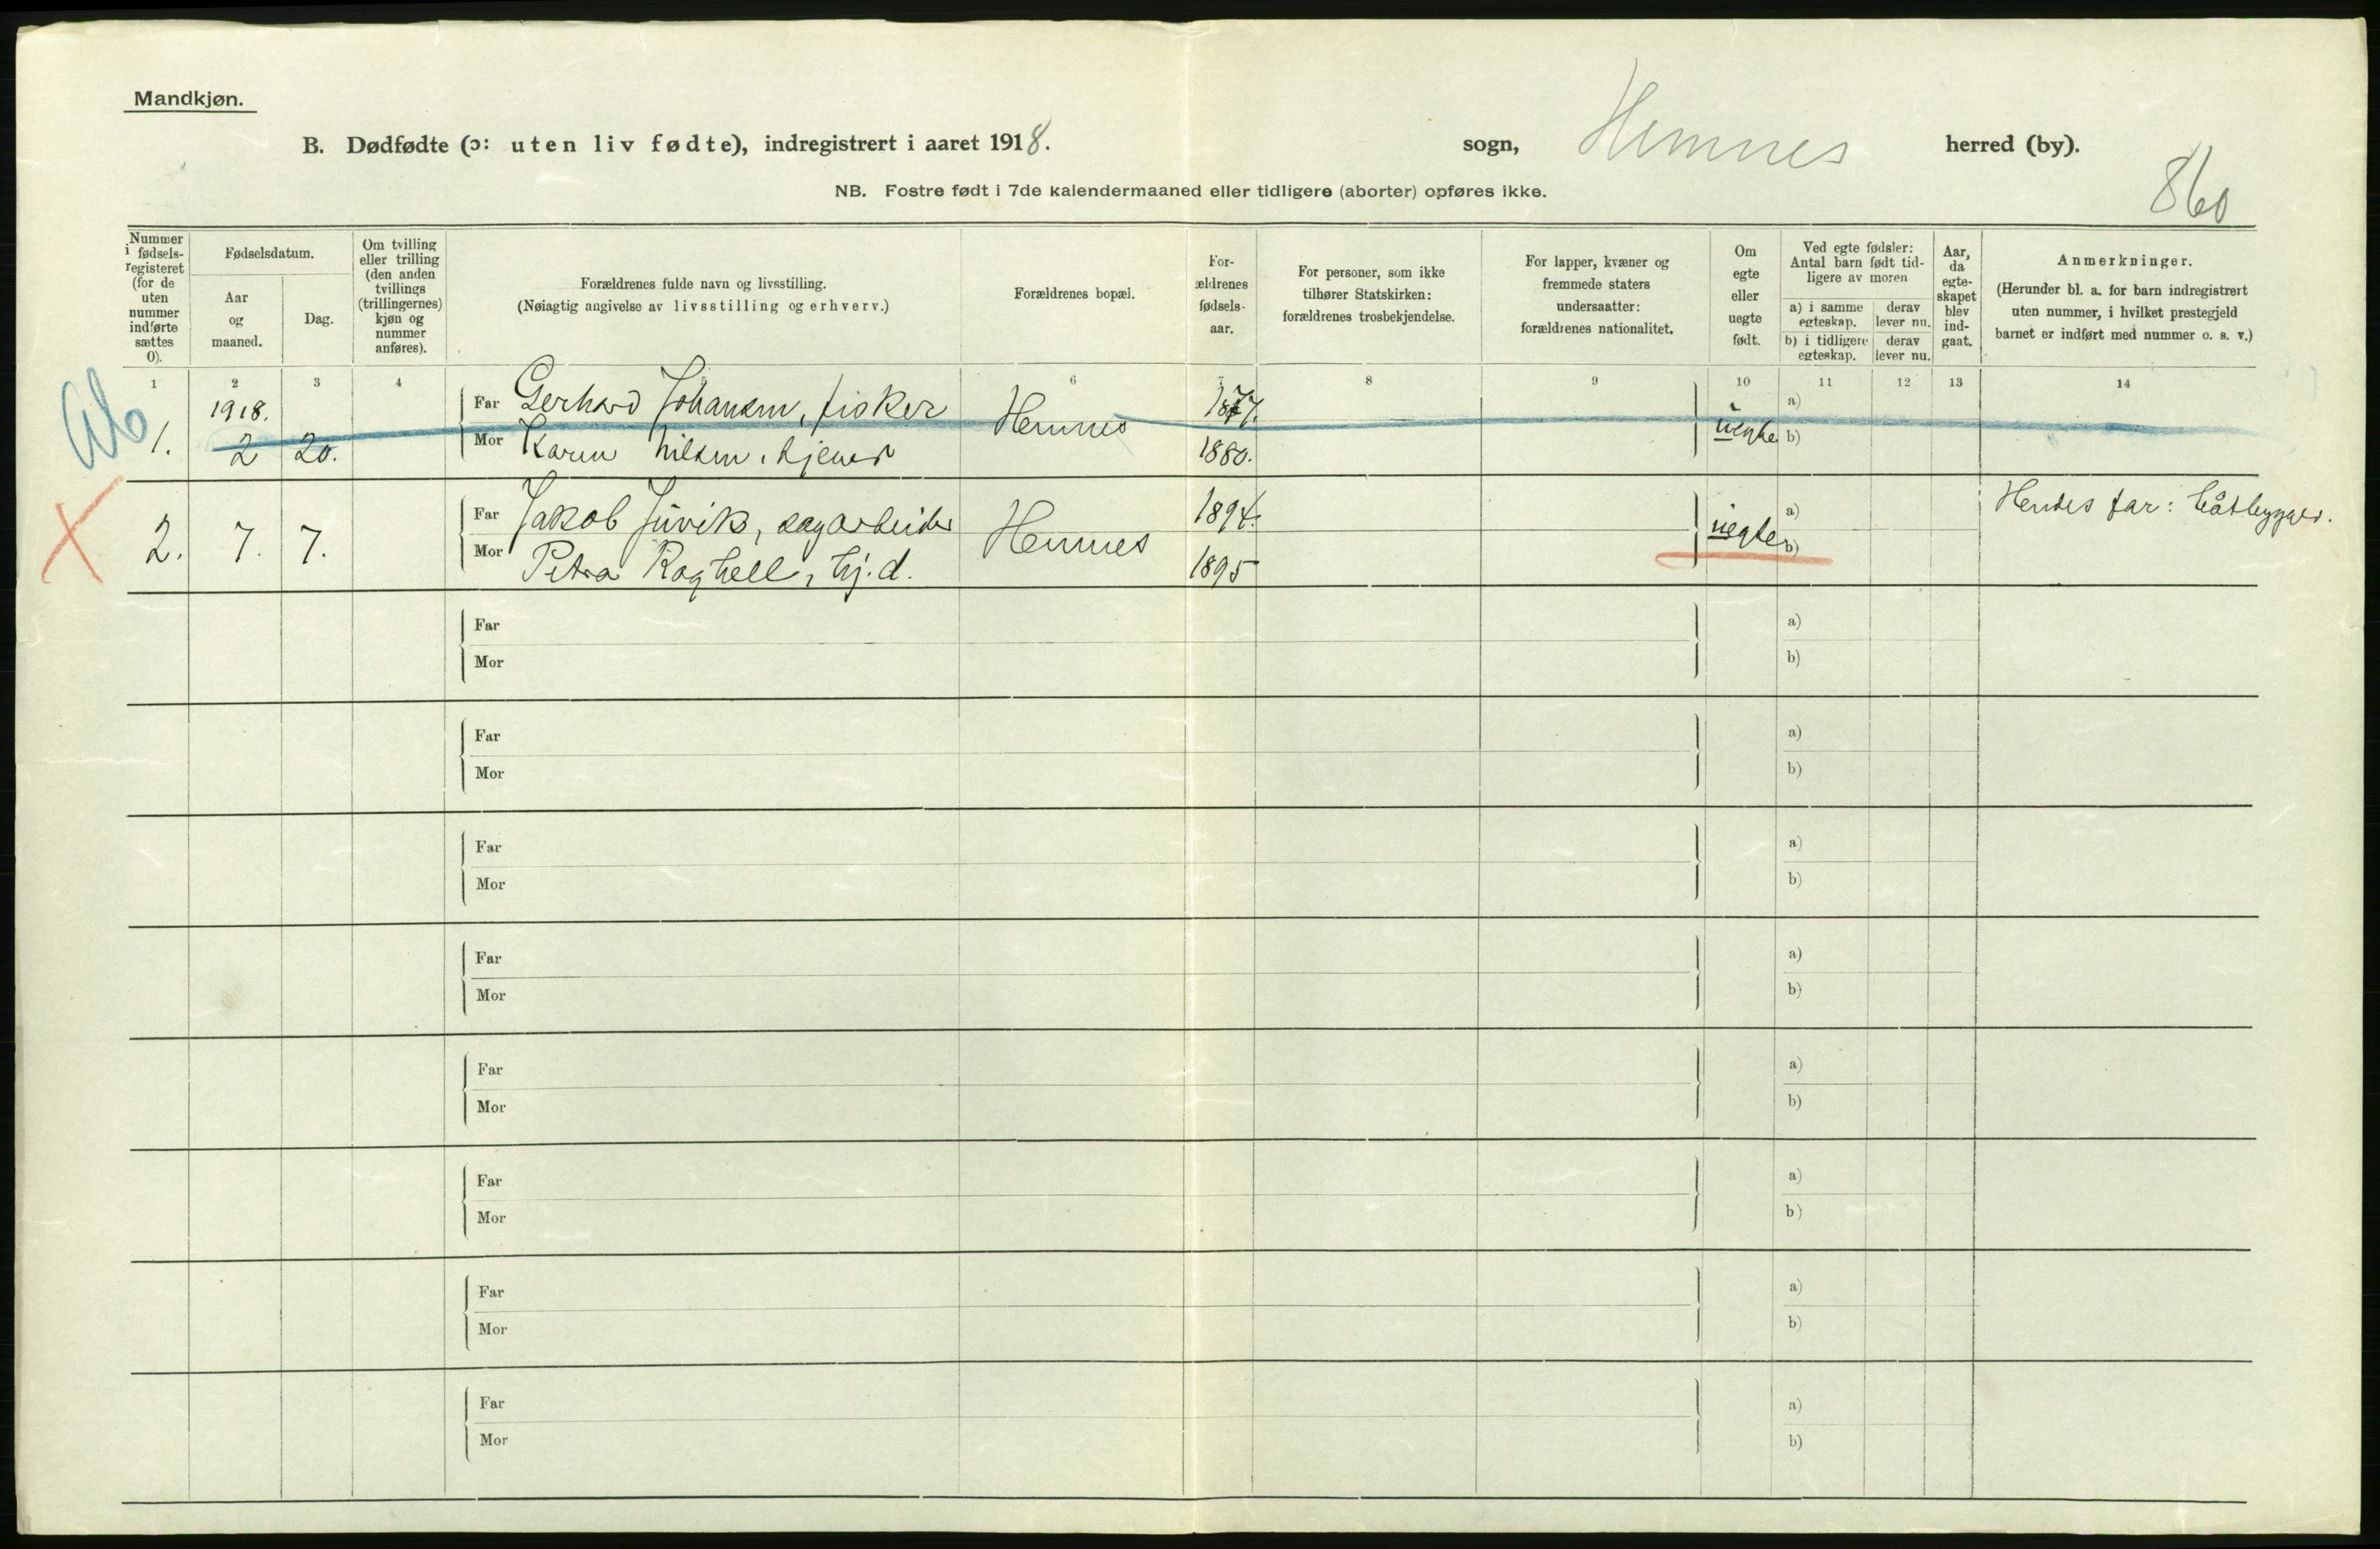 Mandkjøn.
B. Dødfødte (ɔ: uten liv fødte), indregistrert i aaret 1918.
sogn, Hemnes herred (by).
860
NB. Fostre født i 7de kalendermaaned eller tidligere (aborter) opføres ikke.
Nummer
i fødsels-
registeret
(for de
uten
nummer
indførte
sættes
0).
Fødselsdatum.
Aar
og
maaned.
Dag.
Om tvilling
eller trilling
(den anden
tvillings
(trillingernes)
kjøn og
nummer
anføres).
Forældrenes fulde navn og livsstilling.
(Nøiagtig angivelse av livsstilling og erhverv.)
Forældrenes bopæl.
For-
ældrenes
fødsels-
aar.
For personer, som ikke
tilhører Statskirken:
forældrenes trosbekjendelse.
For lapper, kvæner og
fremmede staters
undersaatter:
forældrenes nationalitet.
Om
egte
eller
uegte
født.
Ved egte fødsler:
Antal barn født tid-
ligere av moren
a) i samme
egteskap.
derav
lever nu.
b) i tidligere
egteskap.
derav
lever nu.
Aar,
da
egte-
skapet
blev
ind-
gaat.
Anmerkninger.
(Herunder bl. a. for barn indregistrert
uten nummer, i hvilket prestegjeld
barnet er indført med nummer o. s. v.)
1 2 3 4 6 8 9 10 11 12 13 14
Ab
1. 1918. 2 20.
Far Gerhard Johansen, fisker
Mor Karen Nilsen,
Hemnes
1877.
1880.
uegte
a)
b)
2. 7. 7.
Far Jakob Juvik, sagarbeider
Mor Petra tj.d.
Hemnes
1894.
1895
uegte
a)
b)
Hendes far: båtbygger.
Far a)
Mor b)
Far a)
Mor b)
Far a)
Mor b)
Far a)
Mor b)
Far a)
Mor b)
Far a)
Mor b)
Far a)
Mor b)
Far a)
Mor b)